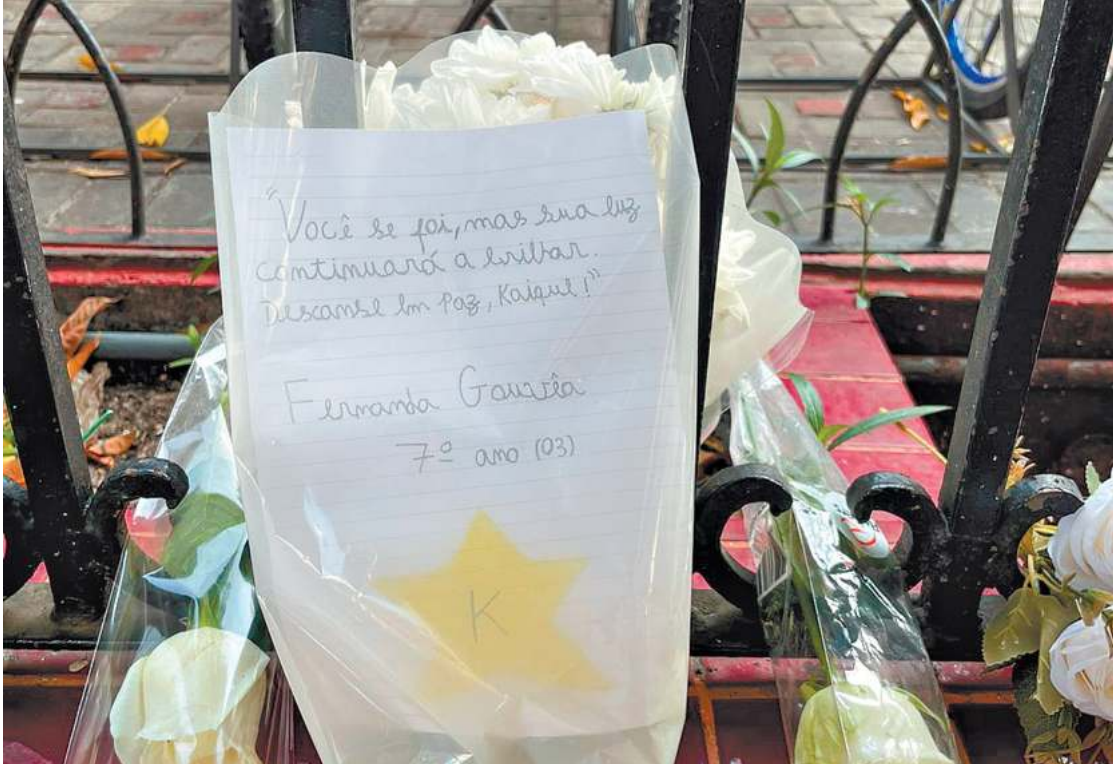 "Você se foi, mas sua luz
continuará a brilhar.
Descanse em Paz, Kaique!"
Fernanda Gouvêa
7º ano (03)
K